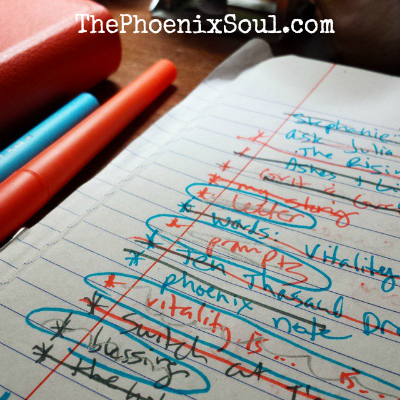 ThePhoenixSoul.com
Stephanie:
* ask Julia
* The Risin
* Ashes + Li
* my story
* Letter
* Words: Vitality
* prompts
* Ten Thasand Dr
* phoenix note
* vitality is... is...
* Switch at Th
* blessing
* the